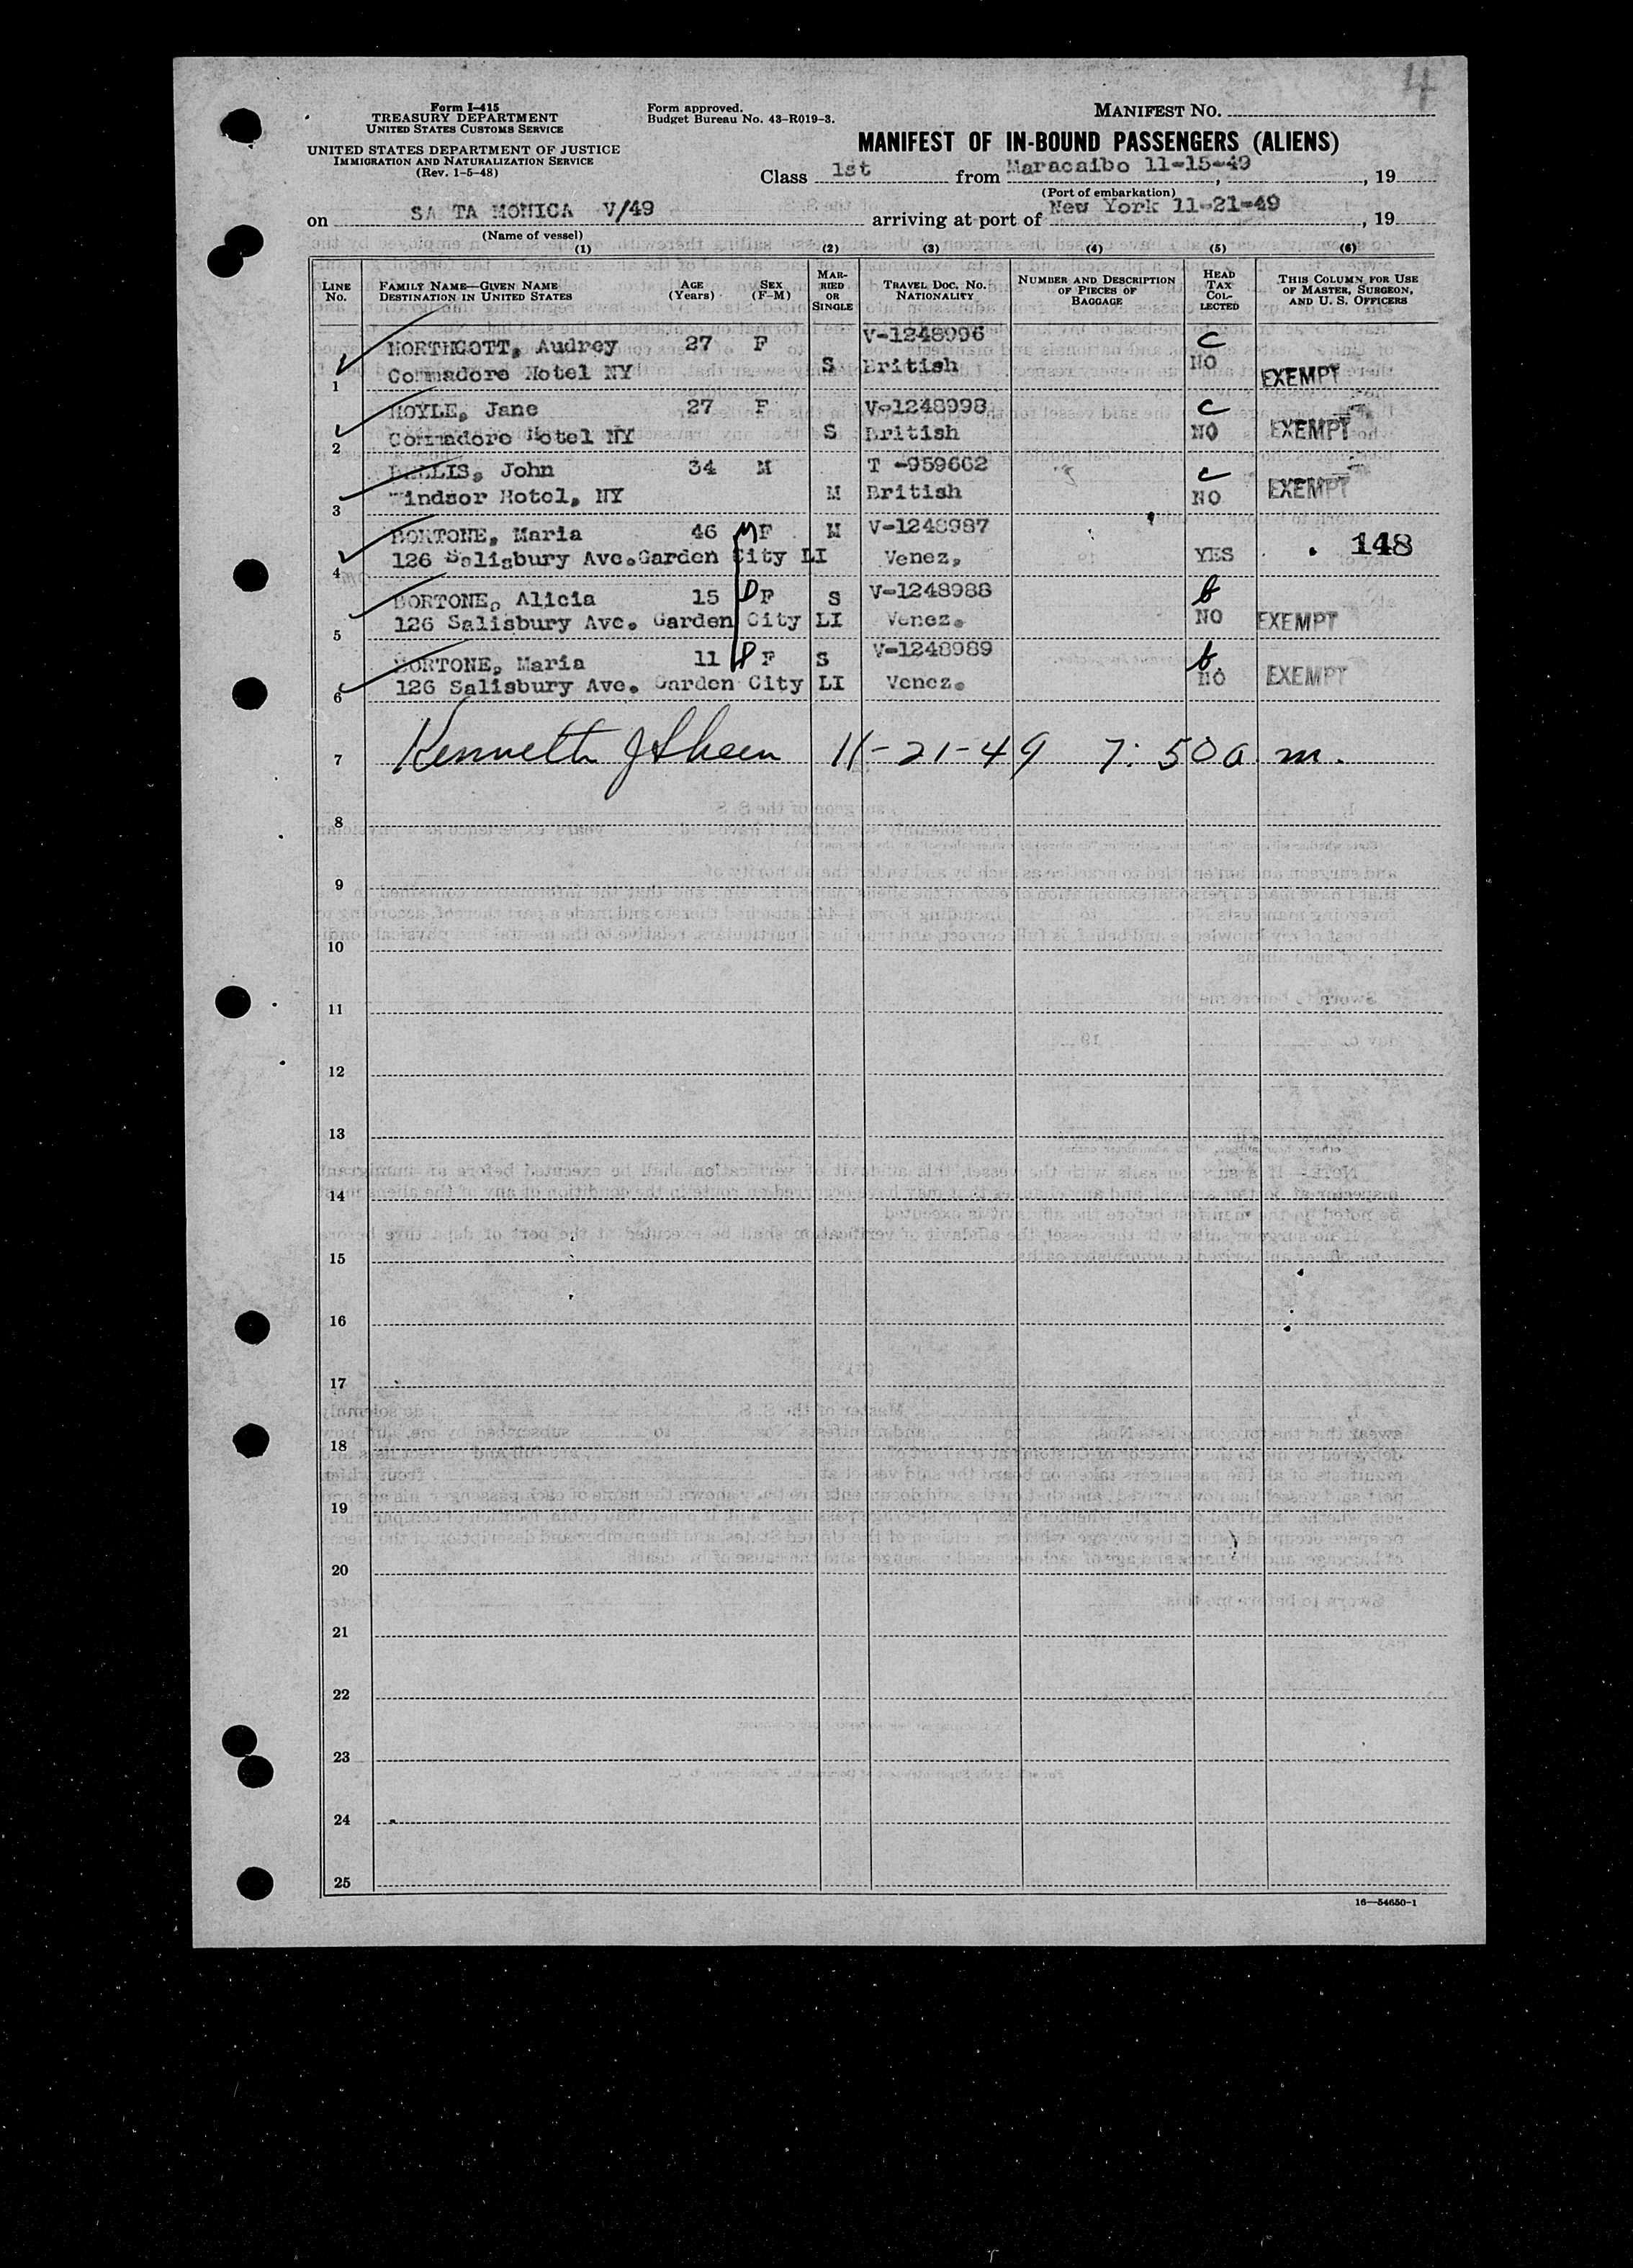 4
Form I-415
TREASURY DEPARTMENT
UNITED STATES CUSTOMS SERVICE
UNITED STATES DEPARTMENT OF JUSTICE
IMMIGRATION AND NATURALIZATION SERVICE
(Rev. 1-5-48)
Form approved.
Budget Bureau No. 43-R019-3.
MANIFEST NO.
MANIFEST OF IN-BOUND PASSENGERS (ALIENS)
Class 1st from Maracaibo 11-15-49, 19
(Port of embarkation)
on SA TA MONICA V/49 arriving at port of New York 11-21-49, 19
(Name of vessel)
(1) (2) (3) (4) (5) (6)
LINE No. FAMILY NAME—GIVEN NAME DESTINATION IN UNITED STATES AGE (Years) SEX (F-M) MARRIED OR SINGLE TRAVEL DOC. NO. NATIONALITY NUMBER AND DESCRIPTION OF PIECES OF BAGGAGE HEAD TAX COLLECTED THIS COLUMN FOR USE OF MASTER, SURGEON, AND U. S. OFFICERS
NORTHCOTT, Audrey 27 F V-1248996 C
1 Commadore Hotel NY S British NO EXEMPT
HOYLE, Jane 27 F V-1248998 C
2 Commadore Hotel NY S British NO EXEMPT
John 34 M T -959662 C
3 Windsor Hotel, NY M British NO EXEMPT
BORTONE, Maria 46 M F M V-1248987
4 126 Salisbury Ave.Garden City LI Venez, YES 148
BORTONE, Alicia 15 D F S V-1248988 b
5 126 Salisbury Ave. Garden City LI Venez. NO EXEMPT
BORTONE, Maria 11 D F S V-1248989 b
6 126 Salisbury Ave. Garden City LI Venez. NO EXEMPT
7 Kenneth J Sheen 11-21-49 7:50 a.m.
8
9
10
11
12
13
14
15
16
17
18
19
20
21
22
23
24
25
16—54650-1